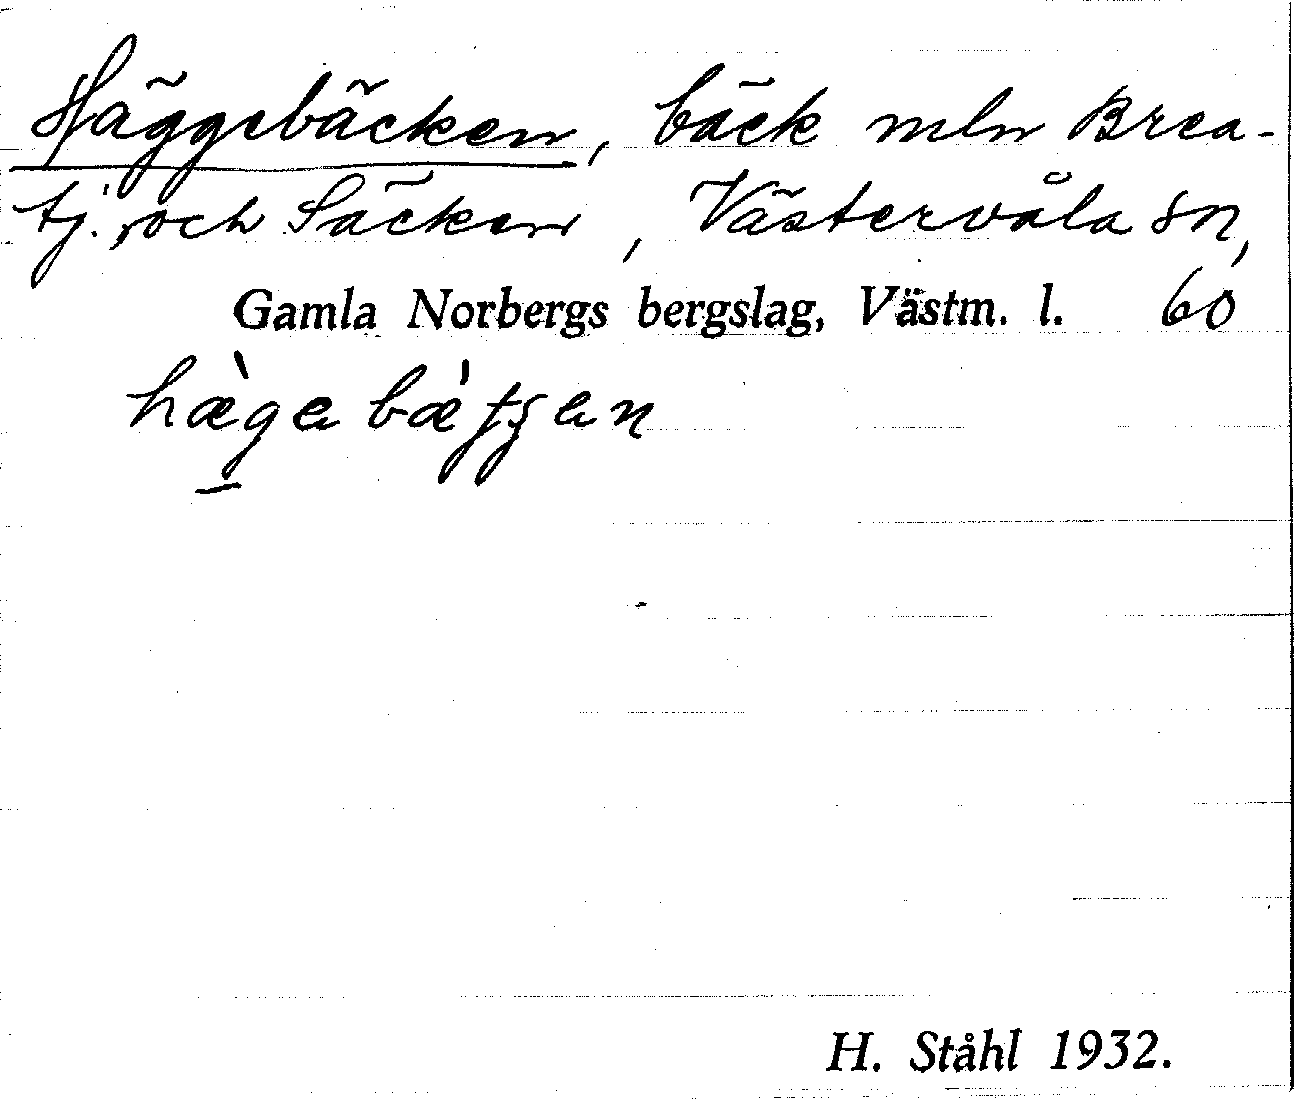 Häggebäcken, bäck mln Brea-
tj. och Säcken, Västervåla sn,
Gamla Norbergs bergslag, Västm. l. 60
H. Ståhl 1932.